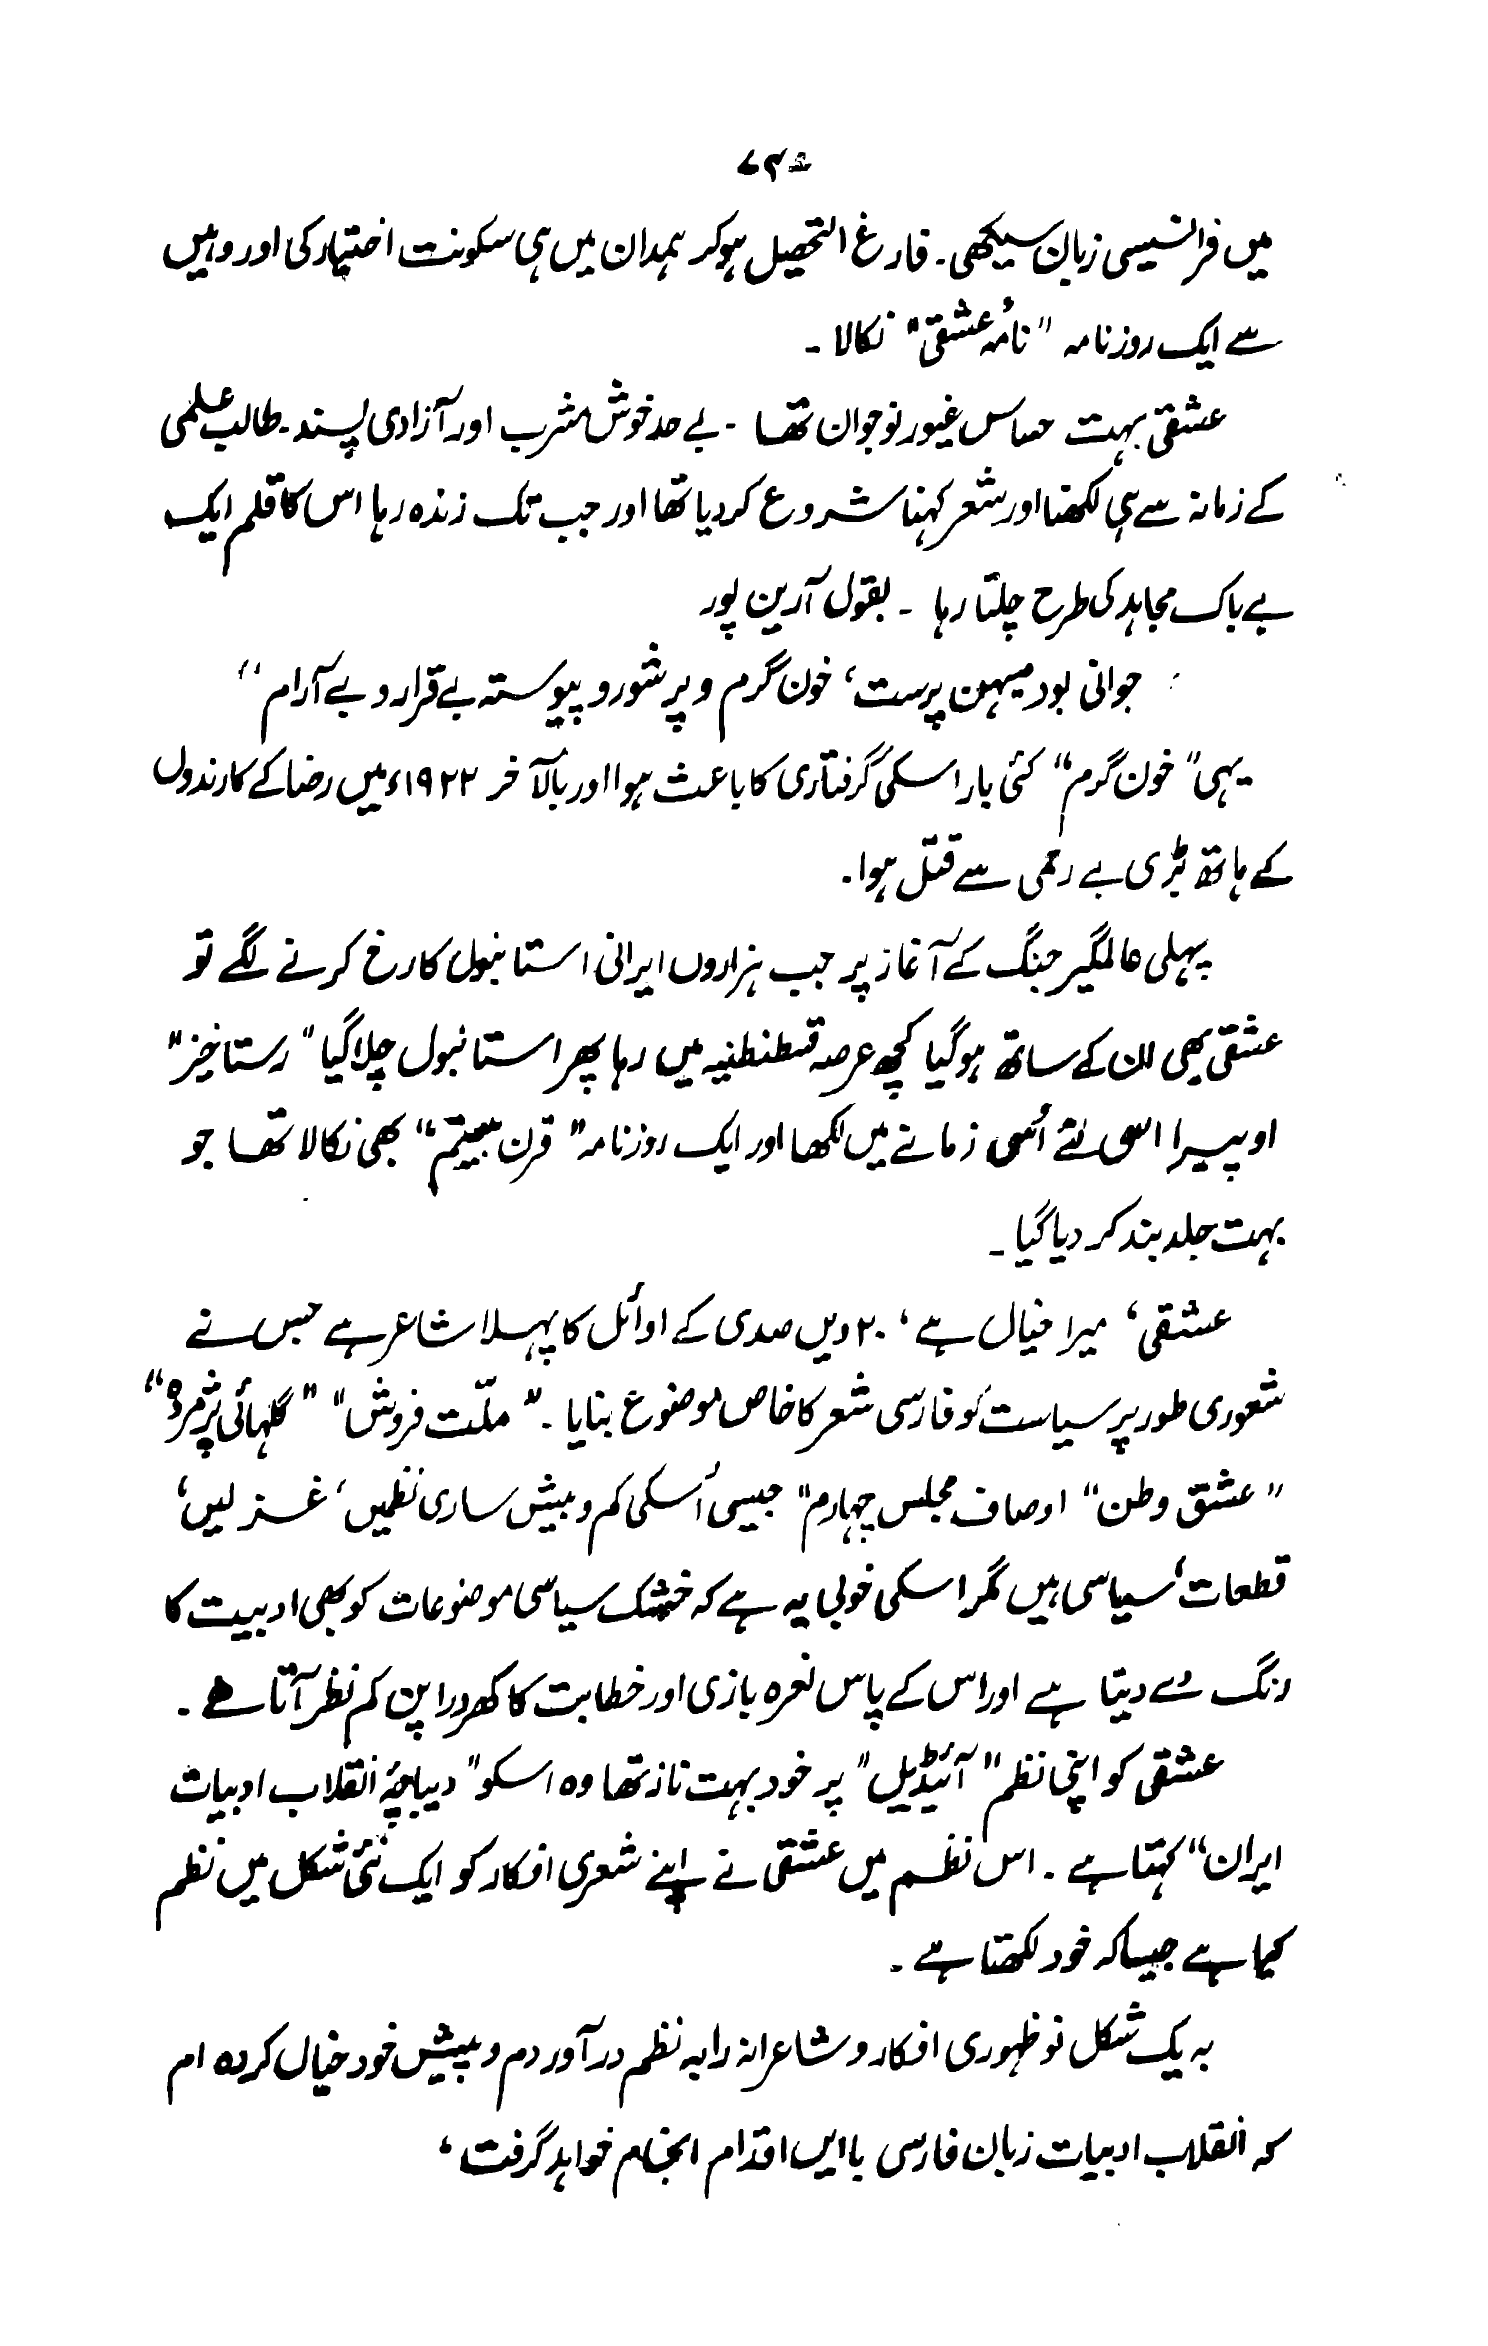 میں فرانسیسی زبان سیکھی۔ فارغ التحصیل ہوکر ہمدان میں ہی سکونت اختیار کی اور وہیں
سے ایک روزنامہ "نامۂ عشقی" نکالا ۔
عشقی بہت حساس غیور نوجوان تھا ۔ بے حد خوش مشرب اور آزادی پسند۔ طالب علمی
کے زمانہ سے ہی لکھنا اور شعر کہنا شروع کردیا تھا اور جب تک زندہ رہا اس کا قلم ایک
بے باک مجاہد کی طرح چلتا رہا ۔ بقول آرین پور
جوانی بود میہن پرست، خون گرم و پر شور و پیوستہ بے قرار و بے آرام "
یہی "خون گرم" کئی بار اسکی گرفتاری کا باعث ہوا اور بالآخر ۱۹۲۲ء میں رضا کے کارندوں
کے ہاتھ بڑی بے رحمی سے قتل ہوا۔
پہلی عالمگیر جنگ کے آغاز پر جب ہزاروں ایرانی استانبول کا رخ کرنے لگے تو
عشقی بھی ان کے ساتھ ہوگیا کچھ عرصہ قسطنطنیہ میں رہا پھر استانبول چلا گیا "رستاخیز"
اوپیرا اس نے اُسی زمانے میں لکھا اور ایک روزنامہ "قرن بیستم" بھی نکالا تھا جو
بہت جلد بند کر دیا گیا ۔
عشقی، میرا خیال ہے، ۲۰ ویں صدی کے اوائل کا پہلا شاعر ہے جس نے
شعوری طور پر سیاست کو فارسی شعر کا خاص موضوع بنایا ۔ "ملّت فروش" "گلہائی پژمردہ"
"عشق وطن" اوصاف مجلس چہارم" جیسی اُسکی کم و بیش ساری نظمیں، غزلیں،
قطعات، سیاسی ہیں مگر اسکی خوبی یہ ہے کہ خشک سیاسی موضوعات کو بھی ادبیت کا
رنگ دے دیتا ہے اور اس کے پاس نعرہ بازی اور خطابت کا کھردرا پن کم نظر آتا ہے ۔
عشقی کو اپنی نظم "آئیڈیل" پر خود بہت ناز تھا وہ اسکو "دیباچۂ انقلاب ادبیات
ایران" کہتا ہے ۔ اس نظم میں عشقی نے اپنے شعری افکار کو ایک نئی شکل میں نظم
کیا ہے جیسا کہ خود لکھتا ہے ۔
بہ یک شکل نوظہوری افکار و شاعرانہ را بہ نظم در آوردم و پیش خود خیال کردہ ام
کہ انقلاب ادبیات زبان فارسی با ایں اقدام انجام خواہد گرفت ،